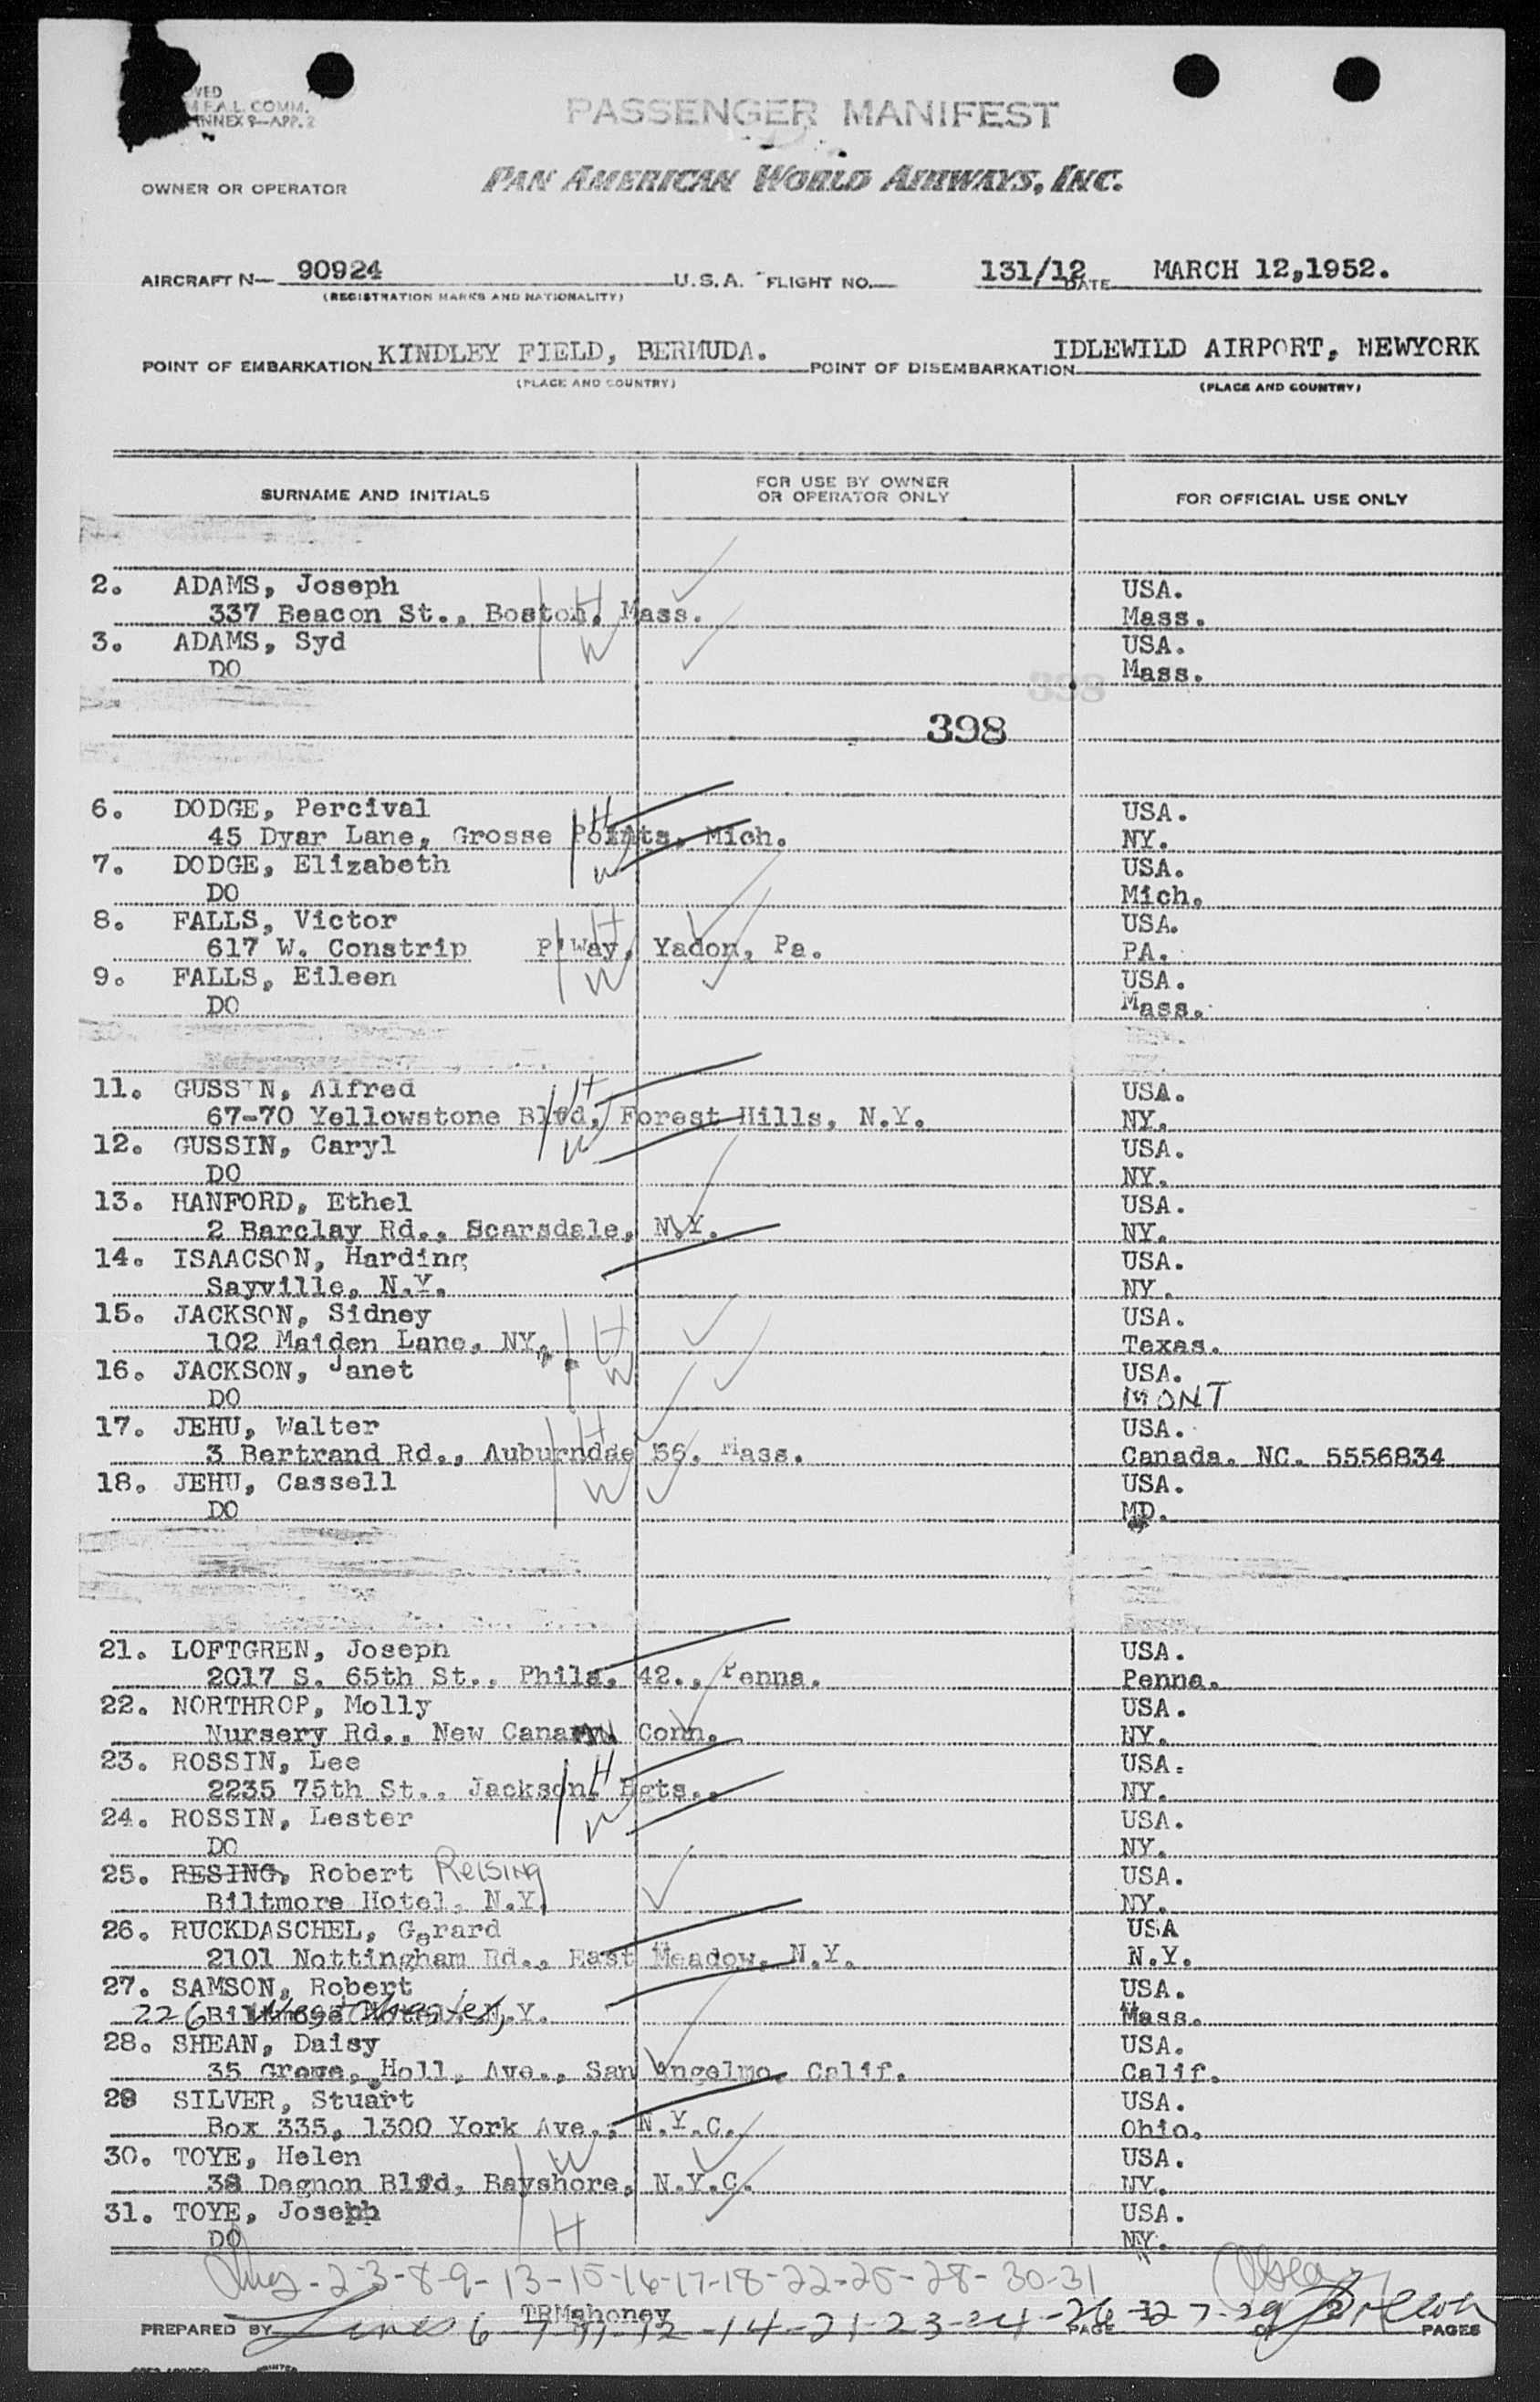 VED
M F.A.L. COMM.
ANNEX 9—APP. 2
PASSENGER MANIFEST
OWNER OR OPERATOR PAN AMERICAN WORLD AIRWAYS, INC.
AIRCRAFT N— 90924 U.S.A. FLIGHT NO. 131/12 DATE MARCH 12,1952.
(REGISTRATION MARKS AND NATIONALITY)
POINT OF EMBARKATION KINDLEY FIELD, BERMUDA. POINT OF DISEMBARKATION IDLEWILD AIRPORT, NEWYORK
(PLACE AND COUNTRY) (PLACE AND COUNTRY)
SURNAME AND INITIALS FOR USE BY OWNER OR OPERATOR ONLY FOR OFFICIAL USE ONLY
2. ADAMS, Joseph H USA.
337 Beacon St., Boston, Mass. Mass.
3. ADAMS, Syd W USA.
DO Mass.
398
398
6. DODGE, Percival H USA.
45 Dyar Lane, Grosse Points, Mich. NY.
7. DODGE, Elizabeth W USA.
DO Mich.
8. FALLS, Victor H USA.
617 W. Constrip P'Way, Yadon, Pa. PA.
9. FALLS, Eileen W USA.
DO Mass.
11. GUSSIN, Alfred H USA.
67-70 Yellowstone Blvd, Forest Hills, N.Y. NY.
12. GUSSIN, Caryl W USA.
DO NY.
13. HANFORD, Ethel USA.
2 Barclay Rd., Scarsdale, N.Y. NY.
14. ISAACSON, Harding USA.
Sayville, N.Y. NY.
15. JACKSON, Sidney H USA.
102 Maiden Lane, NY. Texas.
16. JACKSON, Janet W USA.
DO MONT
17. JEHU, Walter H USA.
3 Bertrand Rd., Auburndae 56, Mass. Canada. NC. 5556834
18. JEHU, Cassell W USA.
DO MD.
21. LOFTGREN, Joseph USA.
2017 S. 65th St., Phila. 42., Penna. Penna.
22. NORTHROP, Molly USA.
Nursery Rd., New Canaan Conn. NY.
23. ROSSIN, Lee H USA.
2235 75th St., Jackson. Hgts., NY.
24. ROSSIN, Lester W USA.
DO NY.
25. RESING, Robert Reising USA.
Biltmore Hotel, N.Y. NY.
26. RUCKDASCHEL, Gerard USA
2101 Nottingham Rd., East Meadow, N.Y. N.Y.
27. SAMSON, Robert USA.
226 Westchester, N.Y. Mass.
28. SHEAN, Daisy USA.
35 Grove, Holl, Ave., San Angelmo, Calif. Calif.
29 SILVER, Stuart USA.
Box 335, 1300 York Ave., N.Y.C. Ohio.
30. TOYE, Helen W USA.
38 Degnon Blvd, Bayshore, N.Y.C. NY.
31. TOYE, Joseph H USA.
DO NY.
-2-3-8-9-13-15-16-17-18-22-25-28-30-31
TRMahoney
PREPARED BY Lines 6-7-11-12-14-21-23-24-26-27-29 PAGE OF PAGES